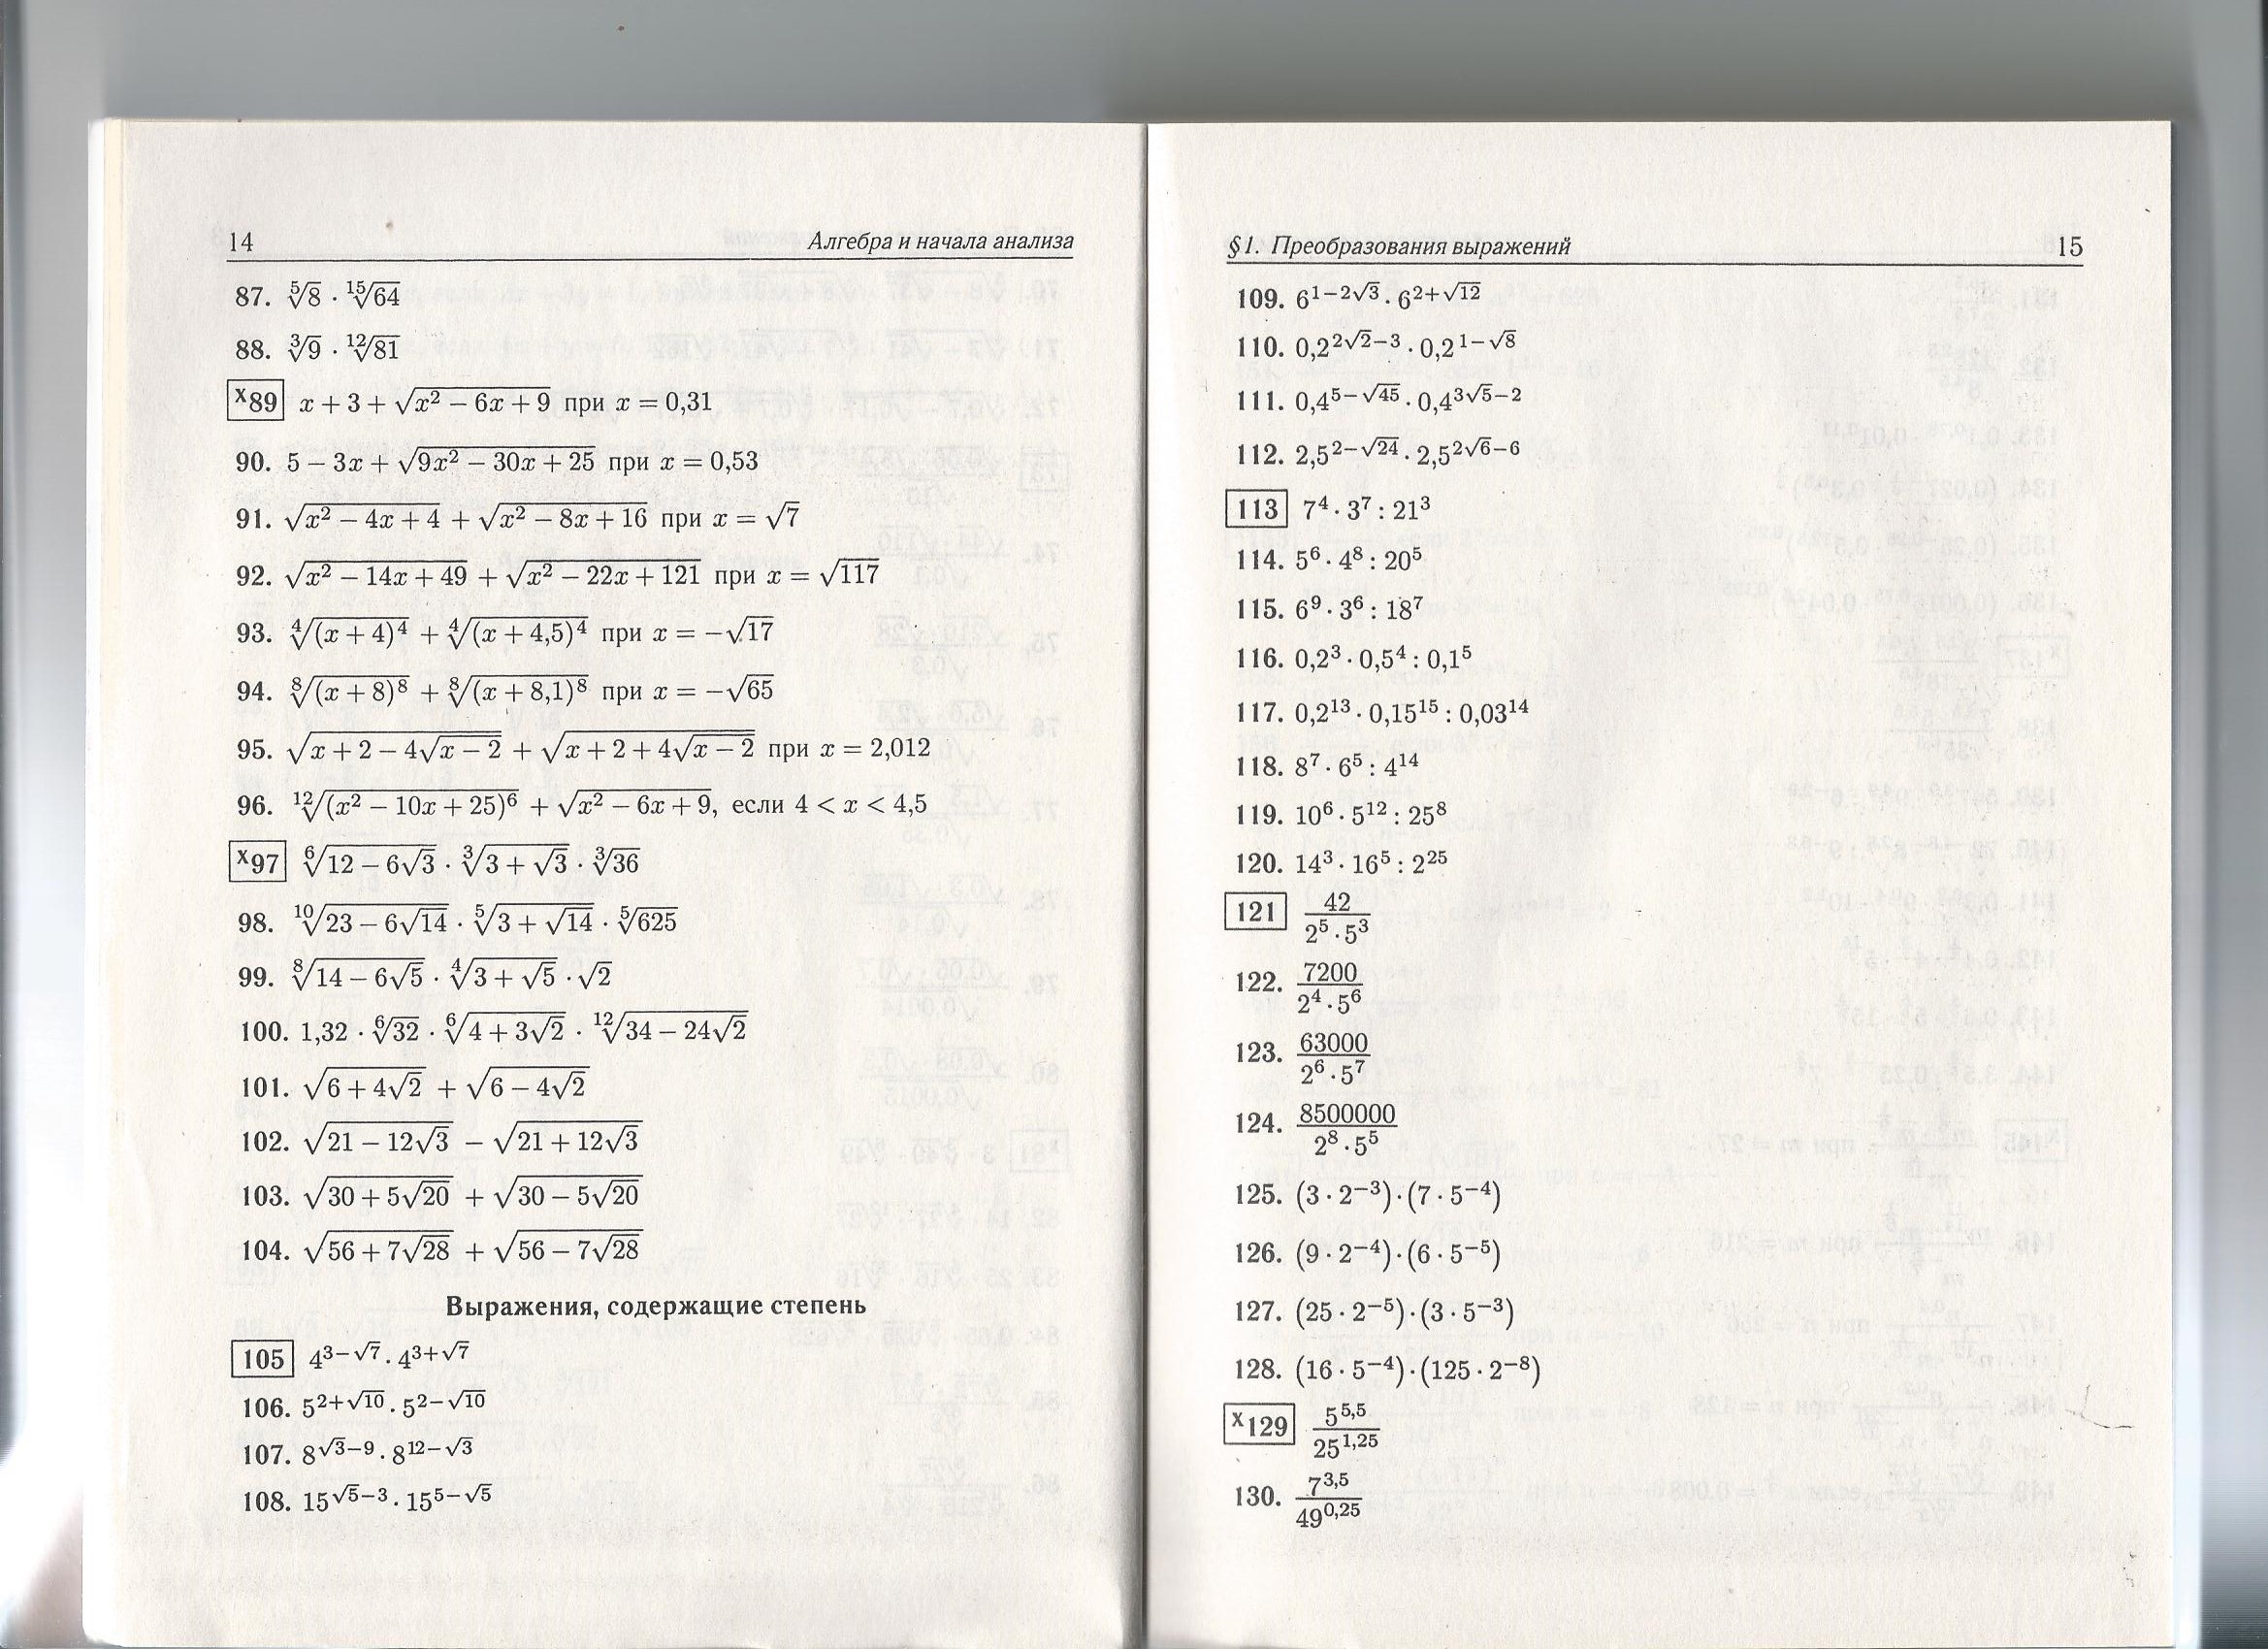 14 Алгебра и начала анализа
87. ⁵√8 · ¹⁵√64
88. ³√9 · ¹²√81
ˣ89 x + 3 + √(x² − 6x + 9) при x = 0,31
90. 5 − 3x + √(9x² − 30x + 25) при x = 0,53
91. √(x² − 4x + 4) + √(x² − 8x + 16) при x = √7
92. √(x² − 14x + 49) + √(x² − 22x + 121) при x = √117
93. ⁴√((x + 4)⁴) + ⁴√((x + 4,5)⁴) при x = −√17
94. ⁸√((x + 8)⁸) + ⁸√((x + 8,1)⁸) при x = −√65
95. √(x + 2 − 4√(x − 2)) + √(x + 2 + 4√(x − 2)) при x = 2,012
96. ¹²√((x² − 10x + 25)⁶) + √(x² − 6x + 9), если 4 < x < 4,5
ˣ97 ⁶√(12 − 6√3) · ³√(3 + √3) · ³√36
98. ¹⁰√(23 − 6√14) · ⁵√(3 + √14) · ⁵√625
99. ⁸√(14 − 6√5) · ⁴√(3 + √5) · √2
100. 1,32 · ⁶√32 · ⁶√(4 + 3√2) · ¹²√(34 − 24√2)
101. √(6 + 4√2) + √(6 − 4√2)
102. √(21 − 12√3) − √(21 + 12√3)
103. √(30 + 5√20) + √(30 − 5√20)
104. √(56 + 7√28) + √(56 − 7√28)
Выражения, содержащие степень
105 4^(3−√7) · 4^(3+√7)
106. 5^(2+√10) · 5^(2−√10)
107. 8^(√3−9) · 8^(12−√3)
108. 15^(√5−3) · 15^(5−√5)
§1. Преобразования выражений 15
109. 6^(1−2√3) · 6^(2+√12)
110. 0,2^(2√2−3) · 0,2^(1−√8)
111. 0,4^(5−√45) · 0,4^(3√5−2)
112. 2,5^(2−√24) · 2,5^(2√6−6)
113 7⁴ · 3⁷ : 21³
114. 5⁶ · 4⁸ : 20⁵
115. 6⁹ · 3⁶ : 18⁷
116. 0,2³ · 0,5⁴ : 0,1⁵
117. 0,2¹³ · 0,15¹⁵ : 0,03¹⁴
118. 8⁷ · 6⁵ : 4¹⁴
119. 10⁶ · 5¹² : 25⁸
120. 14³ · 16⁵ : 2²⁵
121 42/(2⁵ · 5³)
122. 7200/(2⁴ · 5⁶)
123. 63000/(2⁶ · 5⁷)
124. 8500000/(2⁸ · 5⁵)
125. (3 · 2⁻³) · (7 · 5⁻⁴)
126. (9 · 2⁻⁴) · (6 · 5⁻⁵)
127. (25 · 2⁻⁵) · (3 · 5⁻³)
128. (16 · 5⁻⁴) · (125 · 2⁻⁸)
ˣ129 5^(5,5)/25^(1,25)
130. 7^(3,5)/49^(0,25)